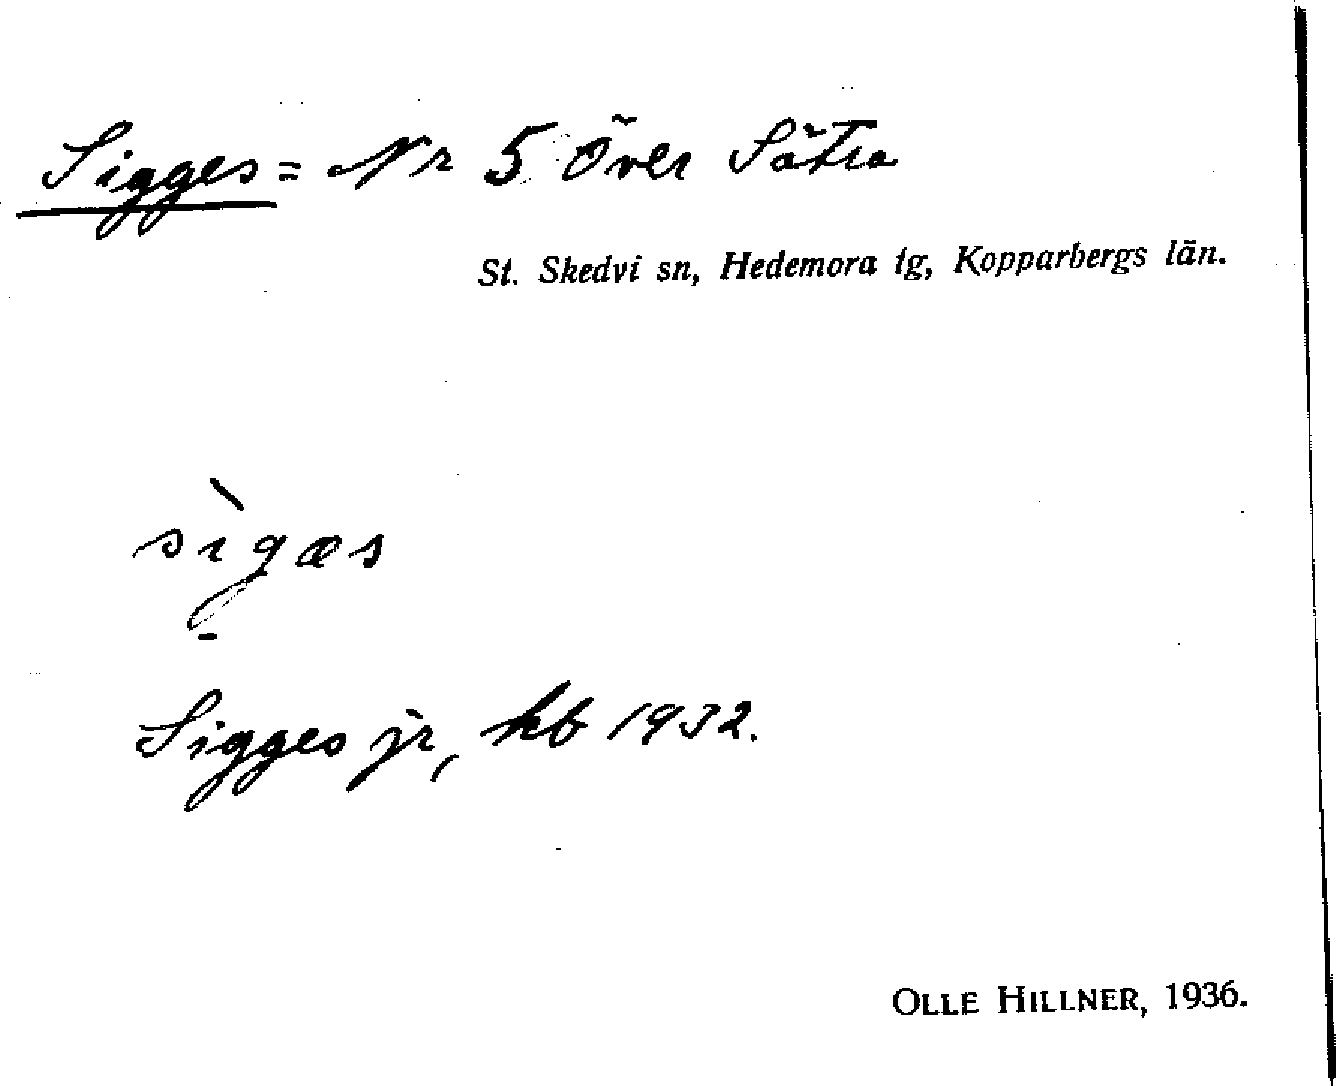 Sigges = Nr 5 Över Sätra
St. Skedvi sn, Hedemora tg, Kopparbergs län.
sìgæs
Sigges jr, kb 1932.
OLLE HILLNER, 1936.